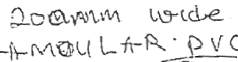 200mm wide
-AMOULAR. PVC